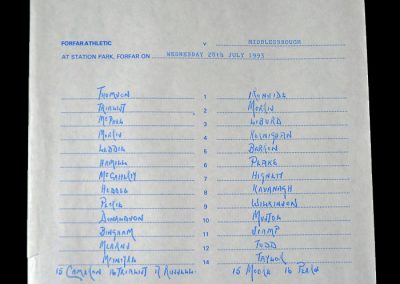 FORFAR ATHLETIC v MIDDLESBROUGH
AT STATION PARK, FORFAR ON WEDNESDAY 28th JULY 1993
THOMSON 1 IRONSIDE
TRIALIST 2 MORRIS
McPHEE 3 LIBURD
MORRIS 4 KERNAGHAN
LEDDIE 5 BARRON
HAMILL 6 PEAKE
7 HIGNETT
HEDDLE 8 KAVANAGH
PETRIE 9 WILKINSON
DONALDSON 10 MUSTOE
BINGHAM 11 STAMP
12 TODD
McINTYRE 14 TAYLOR
15 CAMERON 16 TRIALIST R RUSSELL 15 MOORE 16 PEARS